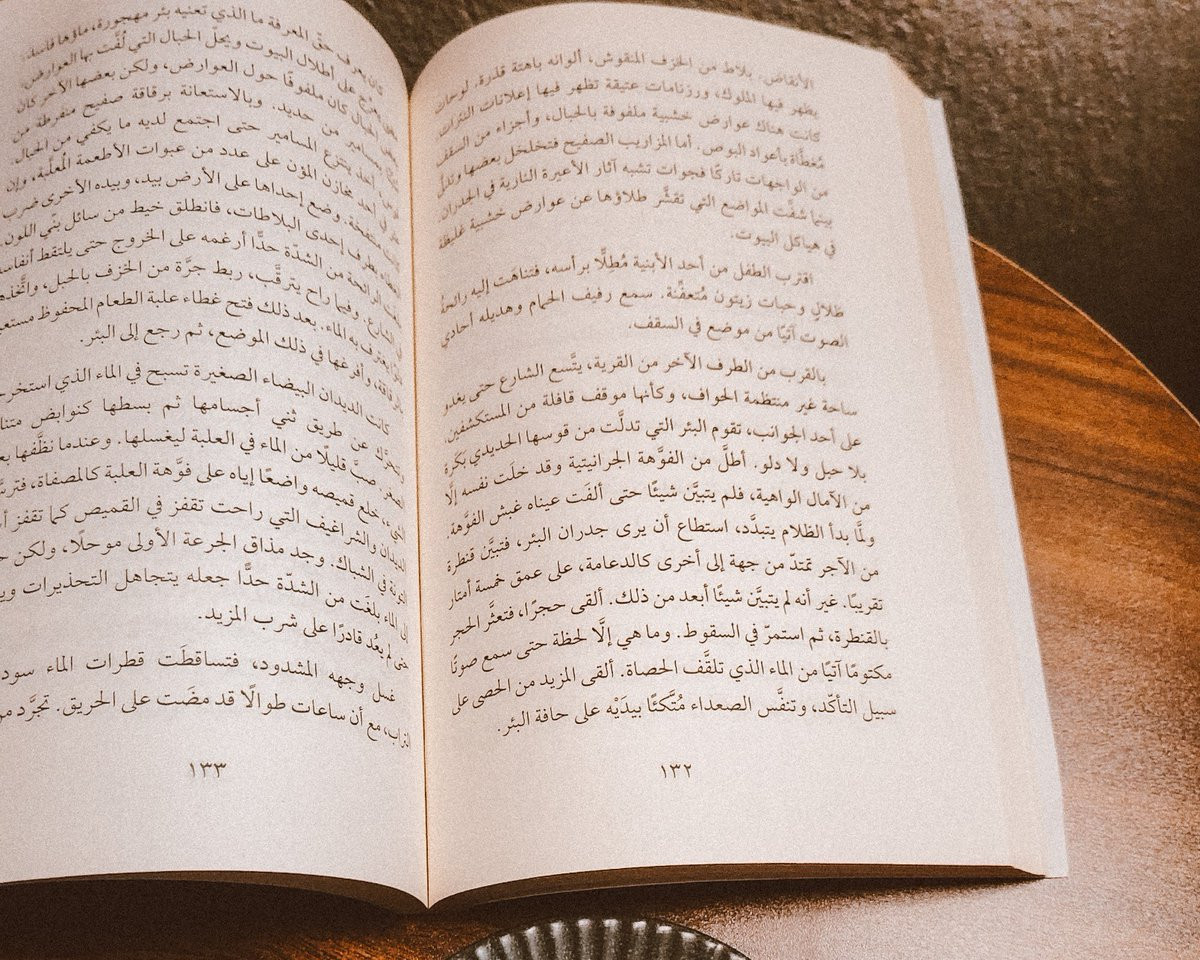 الأنقاض. بلاط من الخزف المنقوش، ألوانه باهتة قذرة. لوحات
يظهر فيها الملوك، ورزنامات عتيقة تظهر فيها إعلانات النترات.
كانت هناك عوارض خشبية ملفوفة بالحبال، وأجزاء من السقف
مُغطَّاة بأعواد البوص. أما المزاريب الصفيح فتخلخل بعضها وتدلَّى
من الواجهات تاركًا فجوات تشبه آثار الأعيرة النارية في الجدران.
بينما شفَّت المواضع التي تقشَّر طلاؤها عن عوارض خشبية غليظة
في هياكل البيوت.
اقترب الطفل من أحد الأبنية مُطِلًّا برأسه، فتناهَت إليه رائحة
ظلال وحبات زيتون مُتعفِّنة. سمع رفيف الحمام وهديله أحادي
الصوت آتيًا من موضع في السقف.
بالقرب من الطرف الآخر من القرية، يتَّسع الشارع حتى يغدو
ساحة غير منتظمة الحواف، وكأنها موقف قافلة من المستكشفين.
على أحد الجوانب، تقوم البئر التي تدلَّت من قوسها الحديدي بكَرة
بلا حبل ولا دلو. أطلَّ من الفوَّهة الجرانيتية وقد خلَت نفسه إلَّا
من الآمال الواهية، فلم يتبيَّن شيئًا حتى ألفَت عيناه غبش الفوَّهة.
ولمَّا بدأ الظلام يتبدَّد، استطاع أن يرى جدران البئر، فتبيَّن قنطرة
من الآجر تمتدّ من جهة إلى أخرى كالدعامة، على عمق خمسة أمتار
تقريبًا. غير أنه لم يتبيَّن شيئًا أبعد من ذلك. ألقى حجرًا، فتعثَّر الحجر
بالقنطرة، ثم استمرّ في السقوط. وما هي إلَّا لحظة حتى سمع صوتًا
مكتومًا آتيًا من الماء الذي تلقَّف الحصاة. ألقى المزيد من الحصى على
سبيل التأكّد، وتنفَّس الصعداء مُتَّكئًا بيدَيْه على حافة البئر.
١٣٢
كان يعرف حقّ المعرفة ما الذي تعنيه بئر مهجورة، ماؤها فاسد.
يعرِّج على أطلال البيوت ويحلّ الحبال التي لُفَّت بها العوارض.
بعض الحبال كان ملفوفًا حول العوارض، ولكن بعضها الآخر كان
بمسامير من حديد. وبالاستعانة برقاقة صفيح منفرطة من
أخذ ينتزع المسامير حتى اجتمع لديه ما يكفي من الحبال.
في أحد مخازن المؤن على عدد من عبوات الأطعمة المُعلَّبة، وإن
كانت منتفخة. وضع إحداها على الأرض بيد، وبيده الأخرى ضرب
بطرف إحدى البلاطات، فانطلق خيط من سائل بنّي اللون.
الرائحة من الشدّة حدًّا أرغمه على الخروج حتى يلتقط أنفاسه
في الشارع. وفيما راح يترقَّب، ربط جرَّة من الخزف بالحبل، واتَّخذها
يغترف به الماء. بعد ذلك فتح غطاء علبة الطعام المحفوظ
بالرقاقة، وأفرغها في ذلك الموضع، ثم رجع إلى البئر.
كانت الديدان البيضاء الصغيرة تسبح في الماء الذي
وتتحرَّك عن طريق ثني أجسامها ثم بسطها كنوابض
الصغر. صبَّ قليلًا من الماء في العلبة ليغسلها. وعندما نظَّفها
خلع قميصه واضعًا إياه على فوَّهة العلبة كالمصفاة،
الديدان والشراغيف التي راحت تقفز في القميص كما تقفز
في الشباك. وجد مذاق الجرعة الأولى موحلًا، ولكن
إلى الماء بلغَت من الشدّة حدًّا جعله يتجاهل التحذيرات
حتى لم يعُد قادرًا على شرب المزيد.
غسل وجهه المشدود، فتساقطَت قطرات الماء
التراب، مع أن ساعات طوالًا قد مضَت على الحريق. تجرَّد
١٣٣